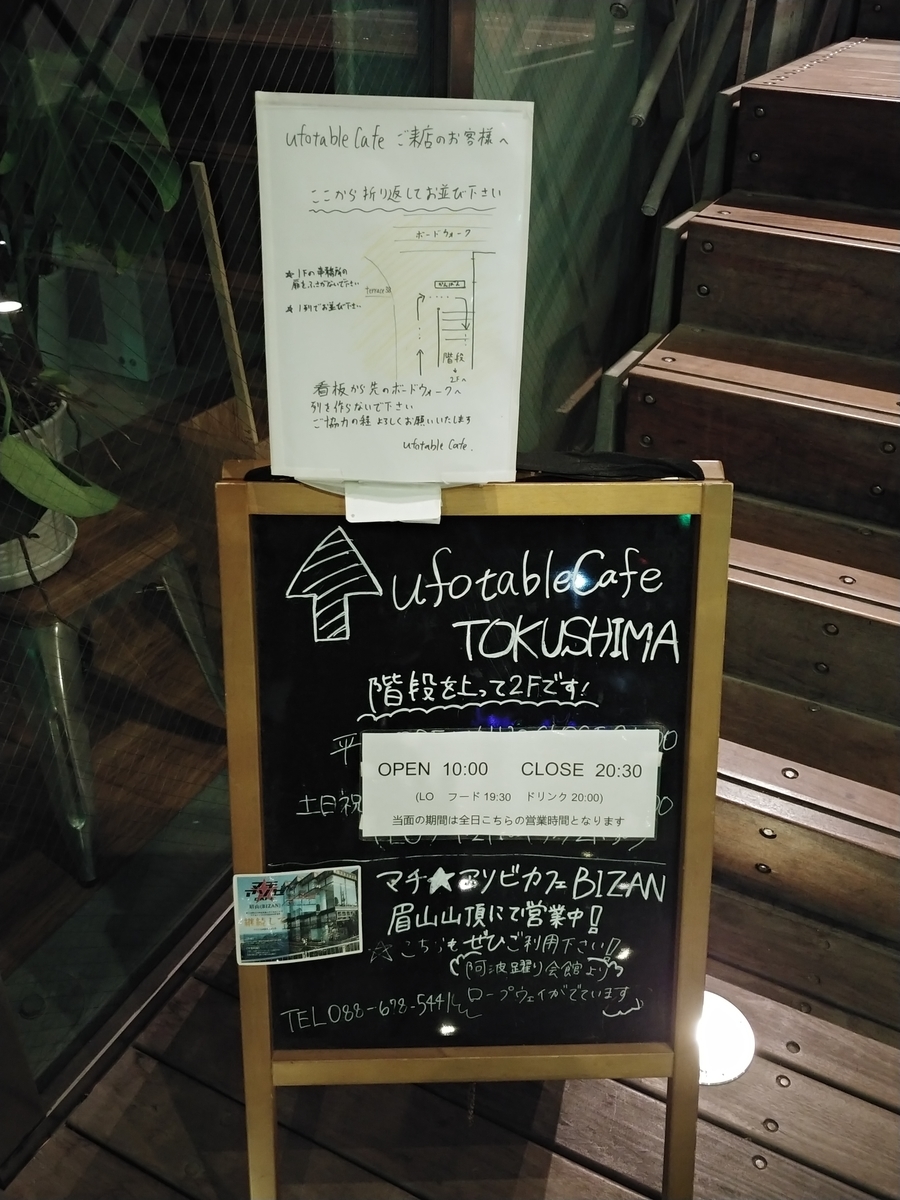 ufotable Cafe ご来店のお客様へ
ここから折り返してお並び下さい
ボードウォーク
★1Fの事務所の
扉をふさがないで下さい
terrace側
かんばん
★1列でお並び下さい
階段
2Fへ
看板から先のボードウォークへ
列を作らないで下さい
ご協力の程よろしくお願いいたします
ufotable Cafe.
ufotableCafe
TOKUSHIMA
階段を上って2Fです!
平
OPEN 10:00 CLOSE 20:30
(LO フード 19:30 ドリンク 20:00)
土日祝
当面の期間は全日こちらの営業時間となります
マチ★アソビカフェBIZAN
眉山山頂にて営業中!!
☆こちらもぜひご利用下さい!!
阿波踊り会館より
ロープウェイがでています
TEL088-678-5441